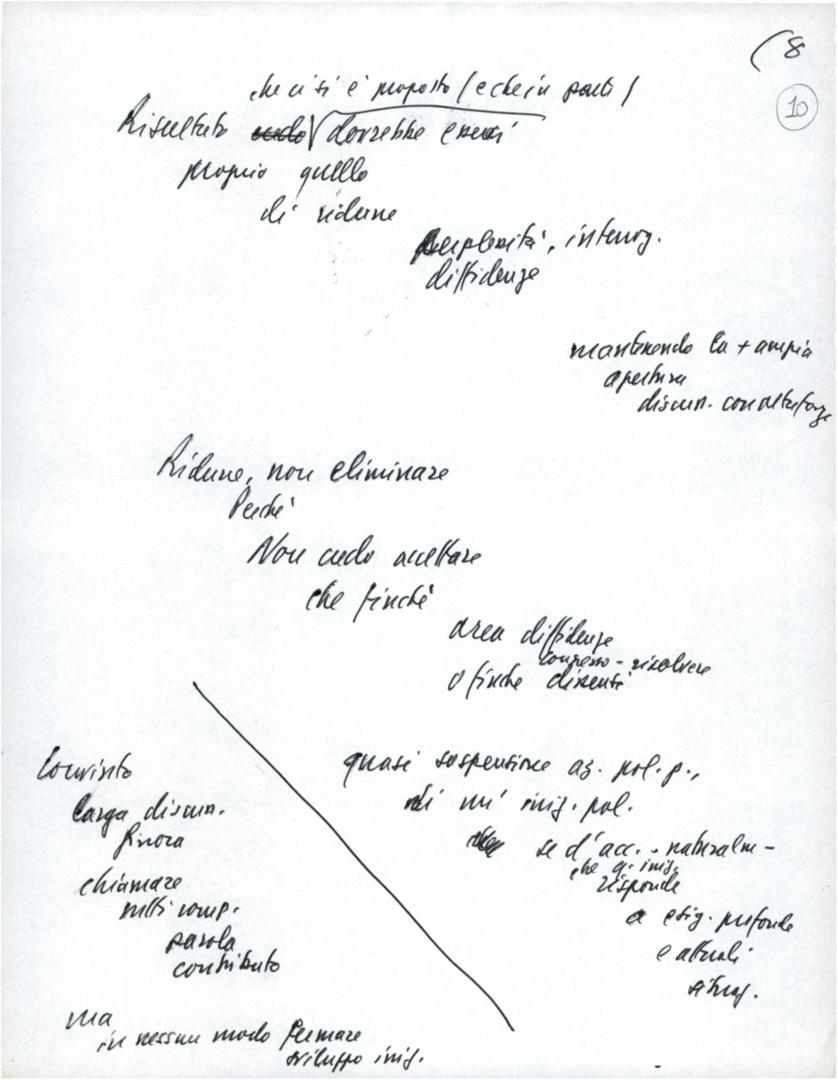 (8
10
che ci si è proposto (e che in parte)
Risultato credo dovrebbe esserci
proprio quello
di ridurre
perplessità, interrog.
diffidenze
mantenendo la + ampia
apertura
discuss. con altre forze
Ridurre, non eliminare
Perché
Non credo accettare
che finché
area diffidenze
congresso - risolvere
o finché dissensi
quasi sospensione az. pol. p.,
di un' iniz. pol.
se d'acc. - naturalm -
che q. iniz.
risponde
a esig. profonde
e attuali
situaz.
Convinto
larga discuss.
finora
chiamare
tutti comp.
parola
contributo
ma
in nessun modo fermare
sviluppo iniz.